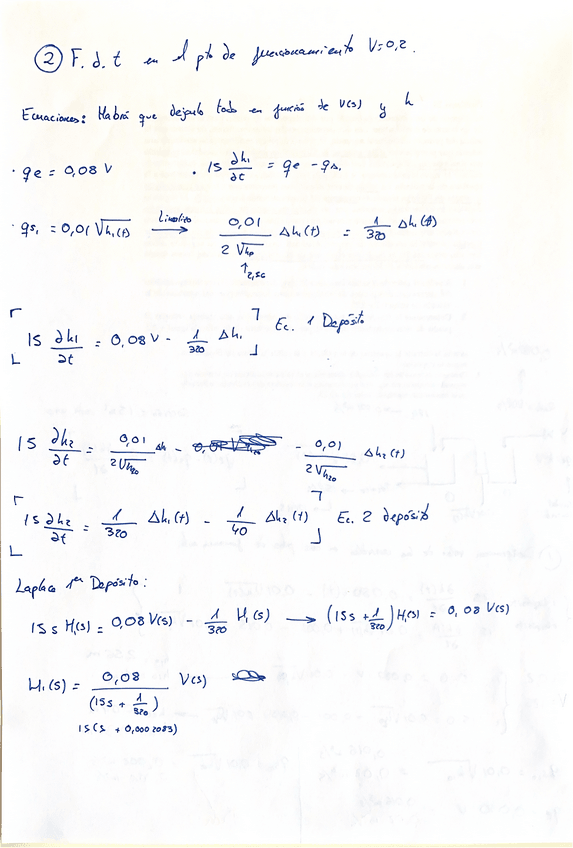 ② F. d. t en el pto de funcionamiento V=0,2.
Ecuaciones: Habrá que dejarlo todo en función de V(s) y h
· qe = 0,08 V · 15 ∂h₁/∂t = qe - qs₁
· qs₁ = 0,01 √h₁(t) Linealizo → 0,01/(2√h₀) Δh₁(t) = 1/320 Δh₁(t)
↑2,56
[15 ∂h₁/∂t = 0,08 V - 1/320 Δh₁] Ec. 1 Depósito
15 ∂h₂/∂t = 0,01/(2√h₂₀) Δh - 0,01/(2√h₂₀) Δh₂(t)
[15 ∂h₂/∂t = 1/320 Δh₁(t) - 1/40 Δh₂(t)] Ec. 2 depósito
Laplace 1er Depósito:
15 s H₁(s) = 0,08 V(s) - 1/320 H₁(s) → (15s + 1/320) H₁(s) = 0,08 V(s)
H₁(s) = 0,08/(15s + 1/320) V(s)
15(s + 0,0002083)